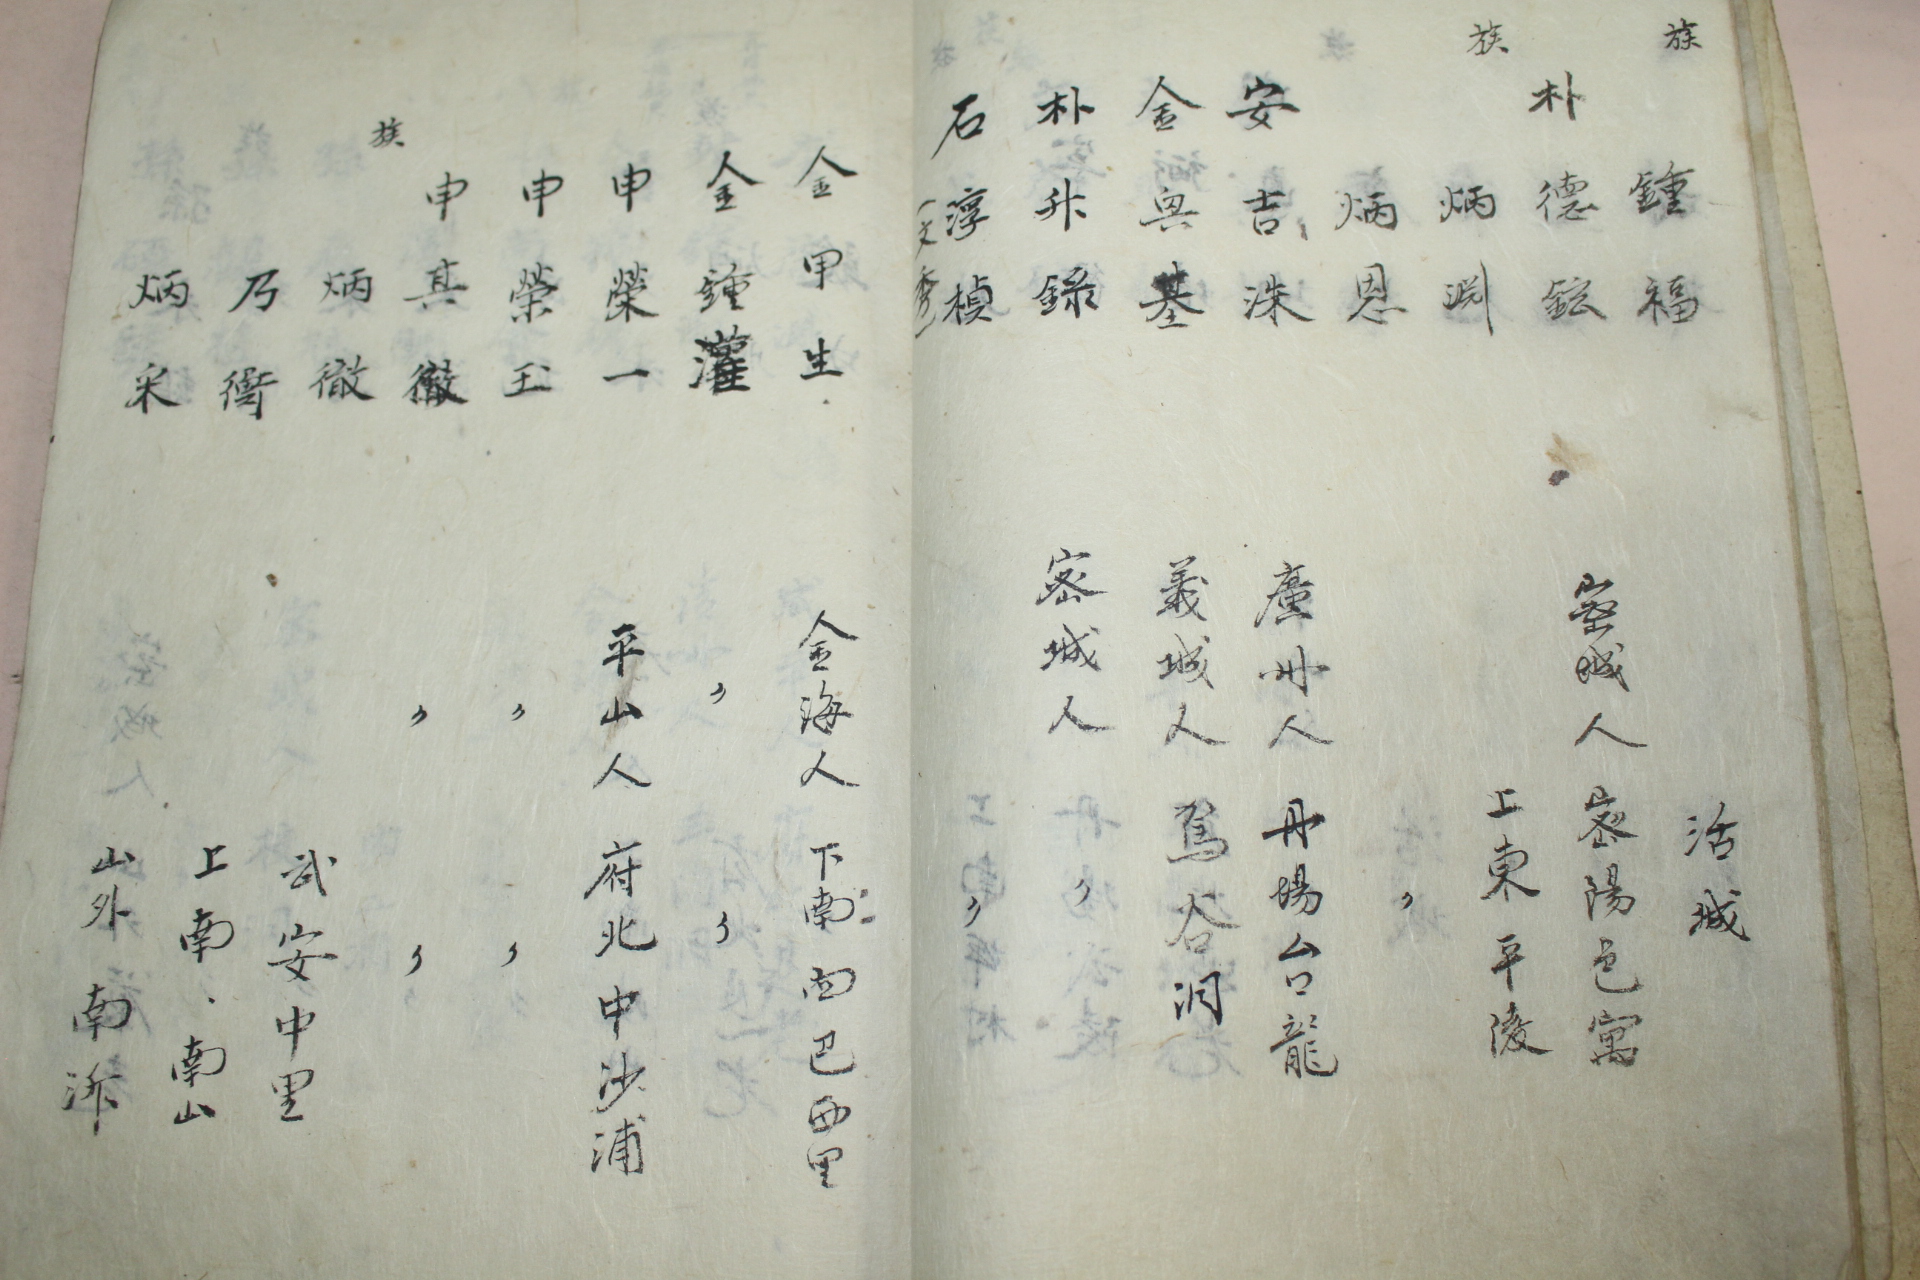 族 鍾福 活城
朴德鉉 密城人 密陽邑寓
族 炳渕 上東平陵
炳恩 〃
安吉洙 廬州人 丹場台龍
金與基 義城人 駕谷洞
朴升錄 密城人 〃
石淳楨 〃
金甲生 金海人 下南面巴西里
金鍾灌 〃 〃
申榮一 平山人 府北中沙浦
申榮玉 〃 〃
申其徹 〃 〃
族 炳徹 武安中里
乃衡 上南、南山
炳采 山外南沂